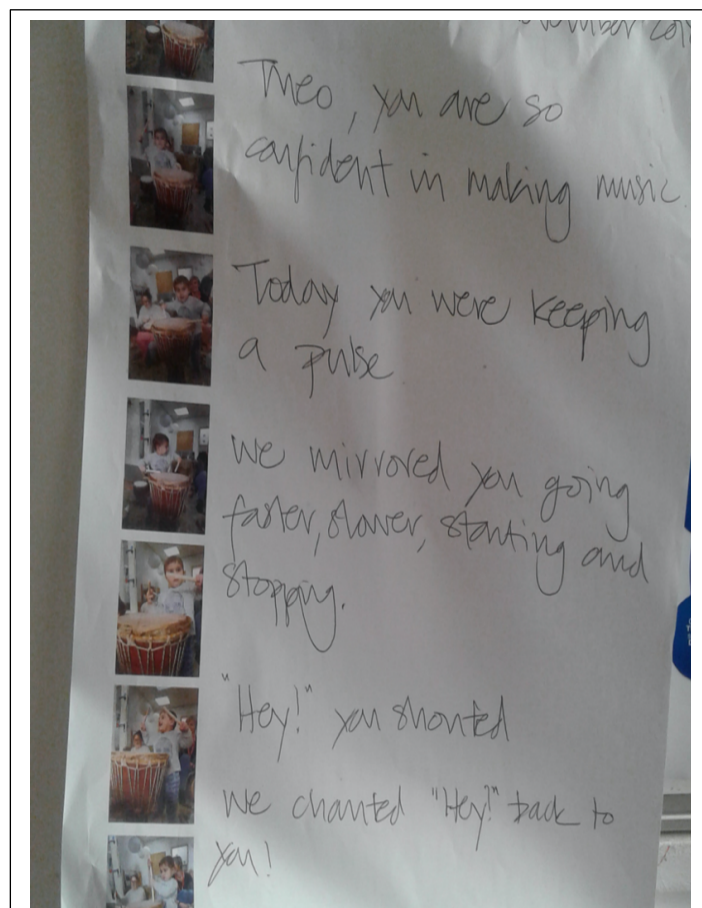 November 201
Theo, you are so
confident in making music.
Today you were keeping
a pulse
we mirrored you going
faster, slower, starting and
stopping.
"Hey!" you shouted
we chanted "Hey!" back to
you!